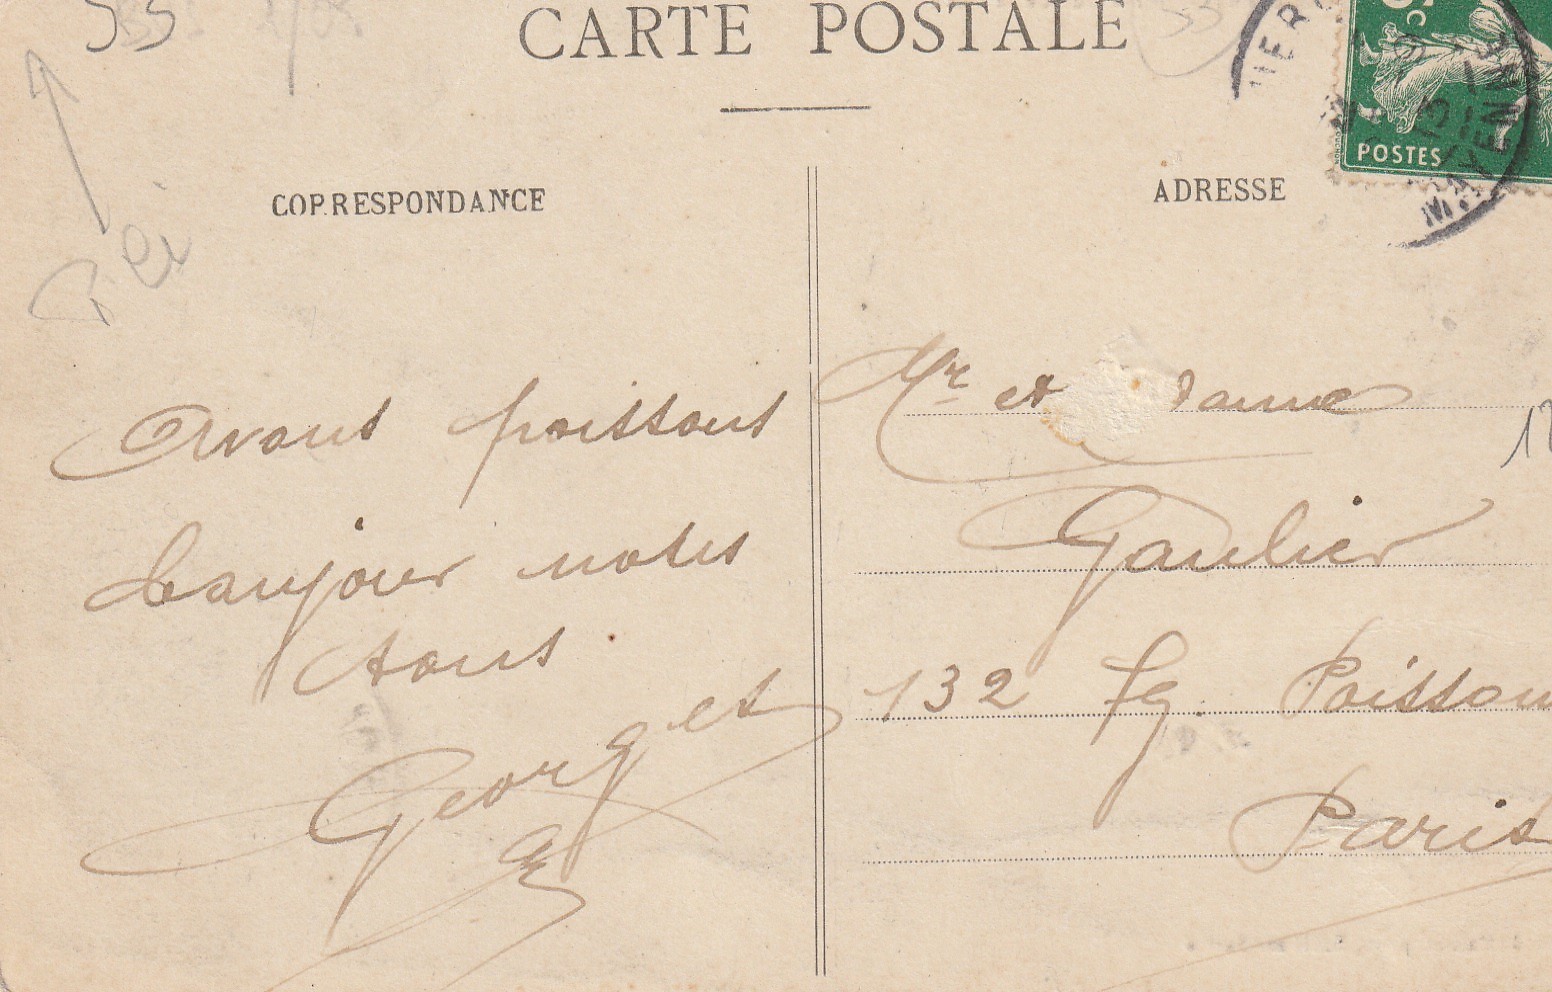 CARTE POSTALE
CORRESPONDANCE
ADRESSE
POSTES
MAYENNE
Avons poissons
bonjour
tous.
Georges
Mr et dame
Gaulier
132 Fg. Poisson
Paris